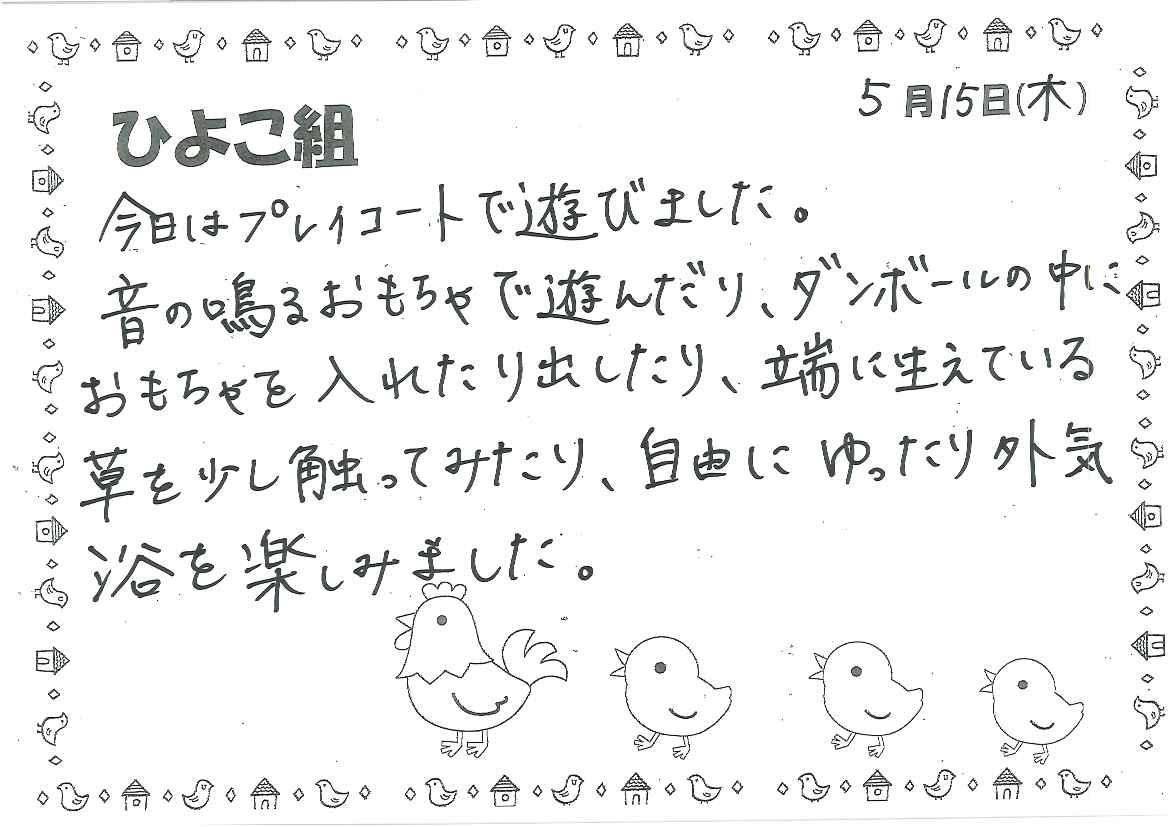 5月15日(木)
ひよこ組
今日はプレイコートで遊びました。
音の鳴るおもちゃで遊んだり、ダンボールの中に
おもちゃを入れたり出したり、端に生えている
草を少し触ってみたり、自由にゆったり外気
浴を楽しみました。